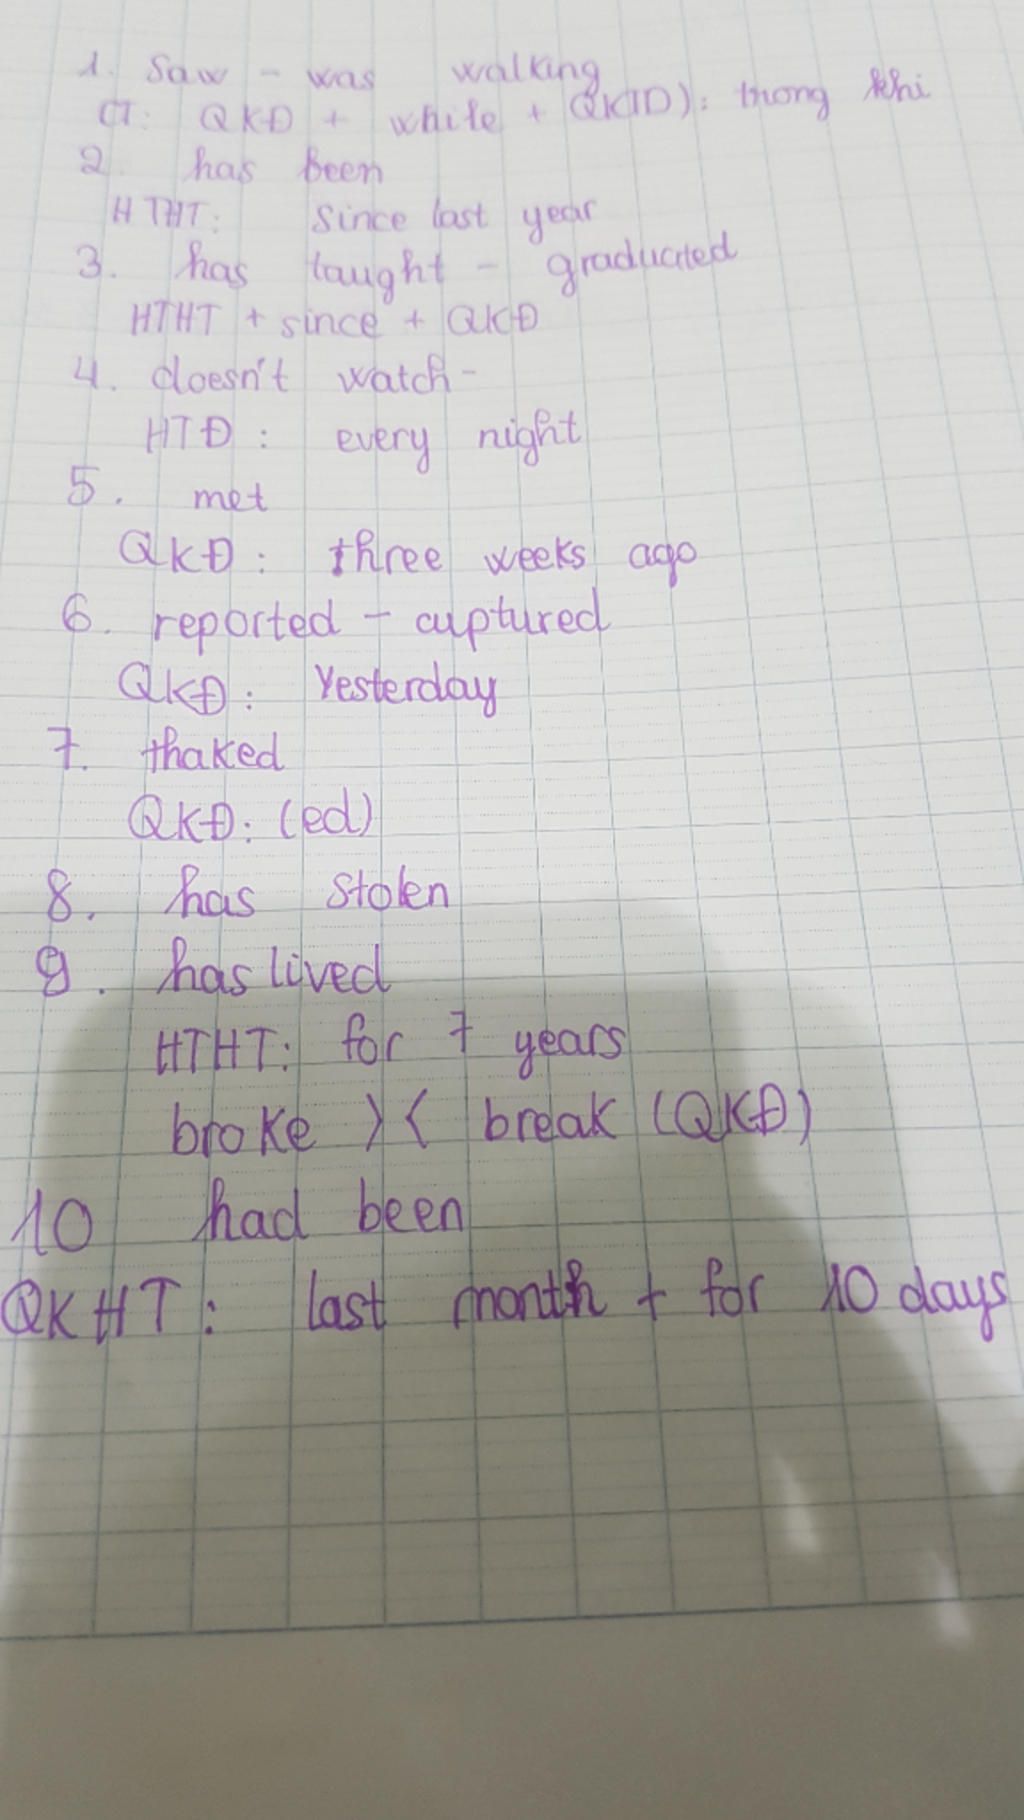 1. Saw - was walking
CT: QKĐ + while + QKTD): trong khi
2. has been
HTHT: Since last year
3. has taught - graduated
HTHT + since + QKĐ
4. doesn't watch -
HTĐ: every night
5. met
QKĐ: three weeks ago
6. reported - captured
QKĐ: Yesterday
7. thaked
QKĐ: (ed)
8. has stolen
9. has lived
HTHT: for 7 years
broke >< break (QKĐ)
10 had been
QKHT: last month + for 10 days